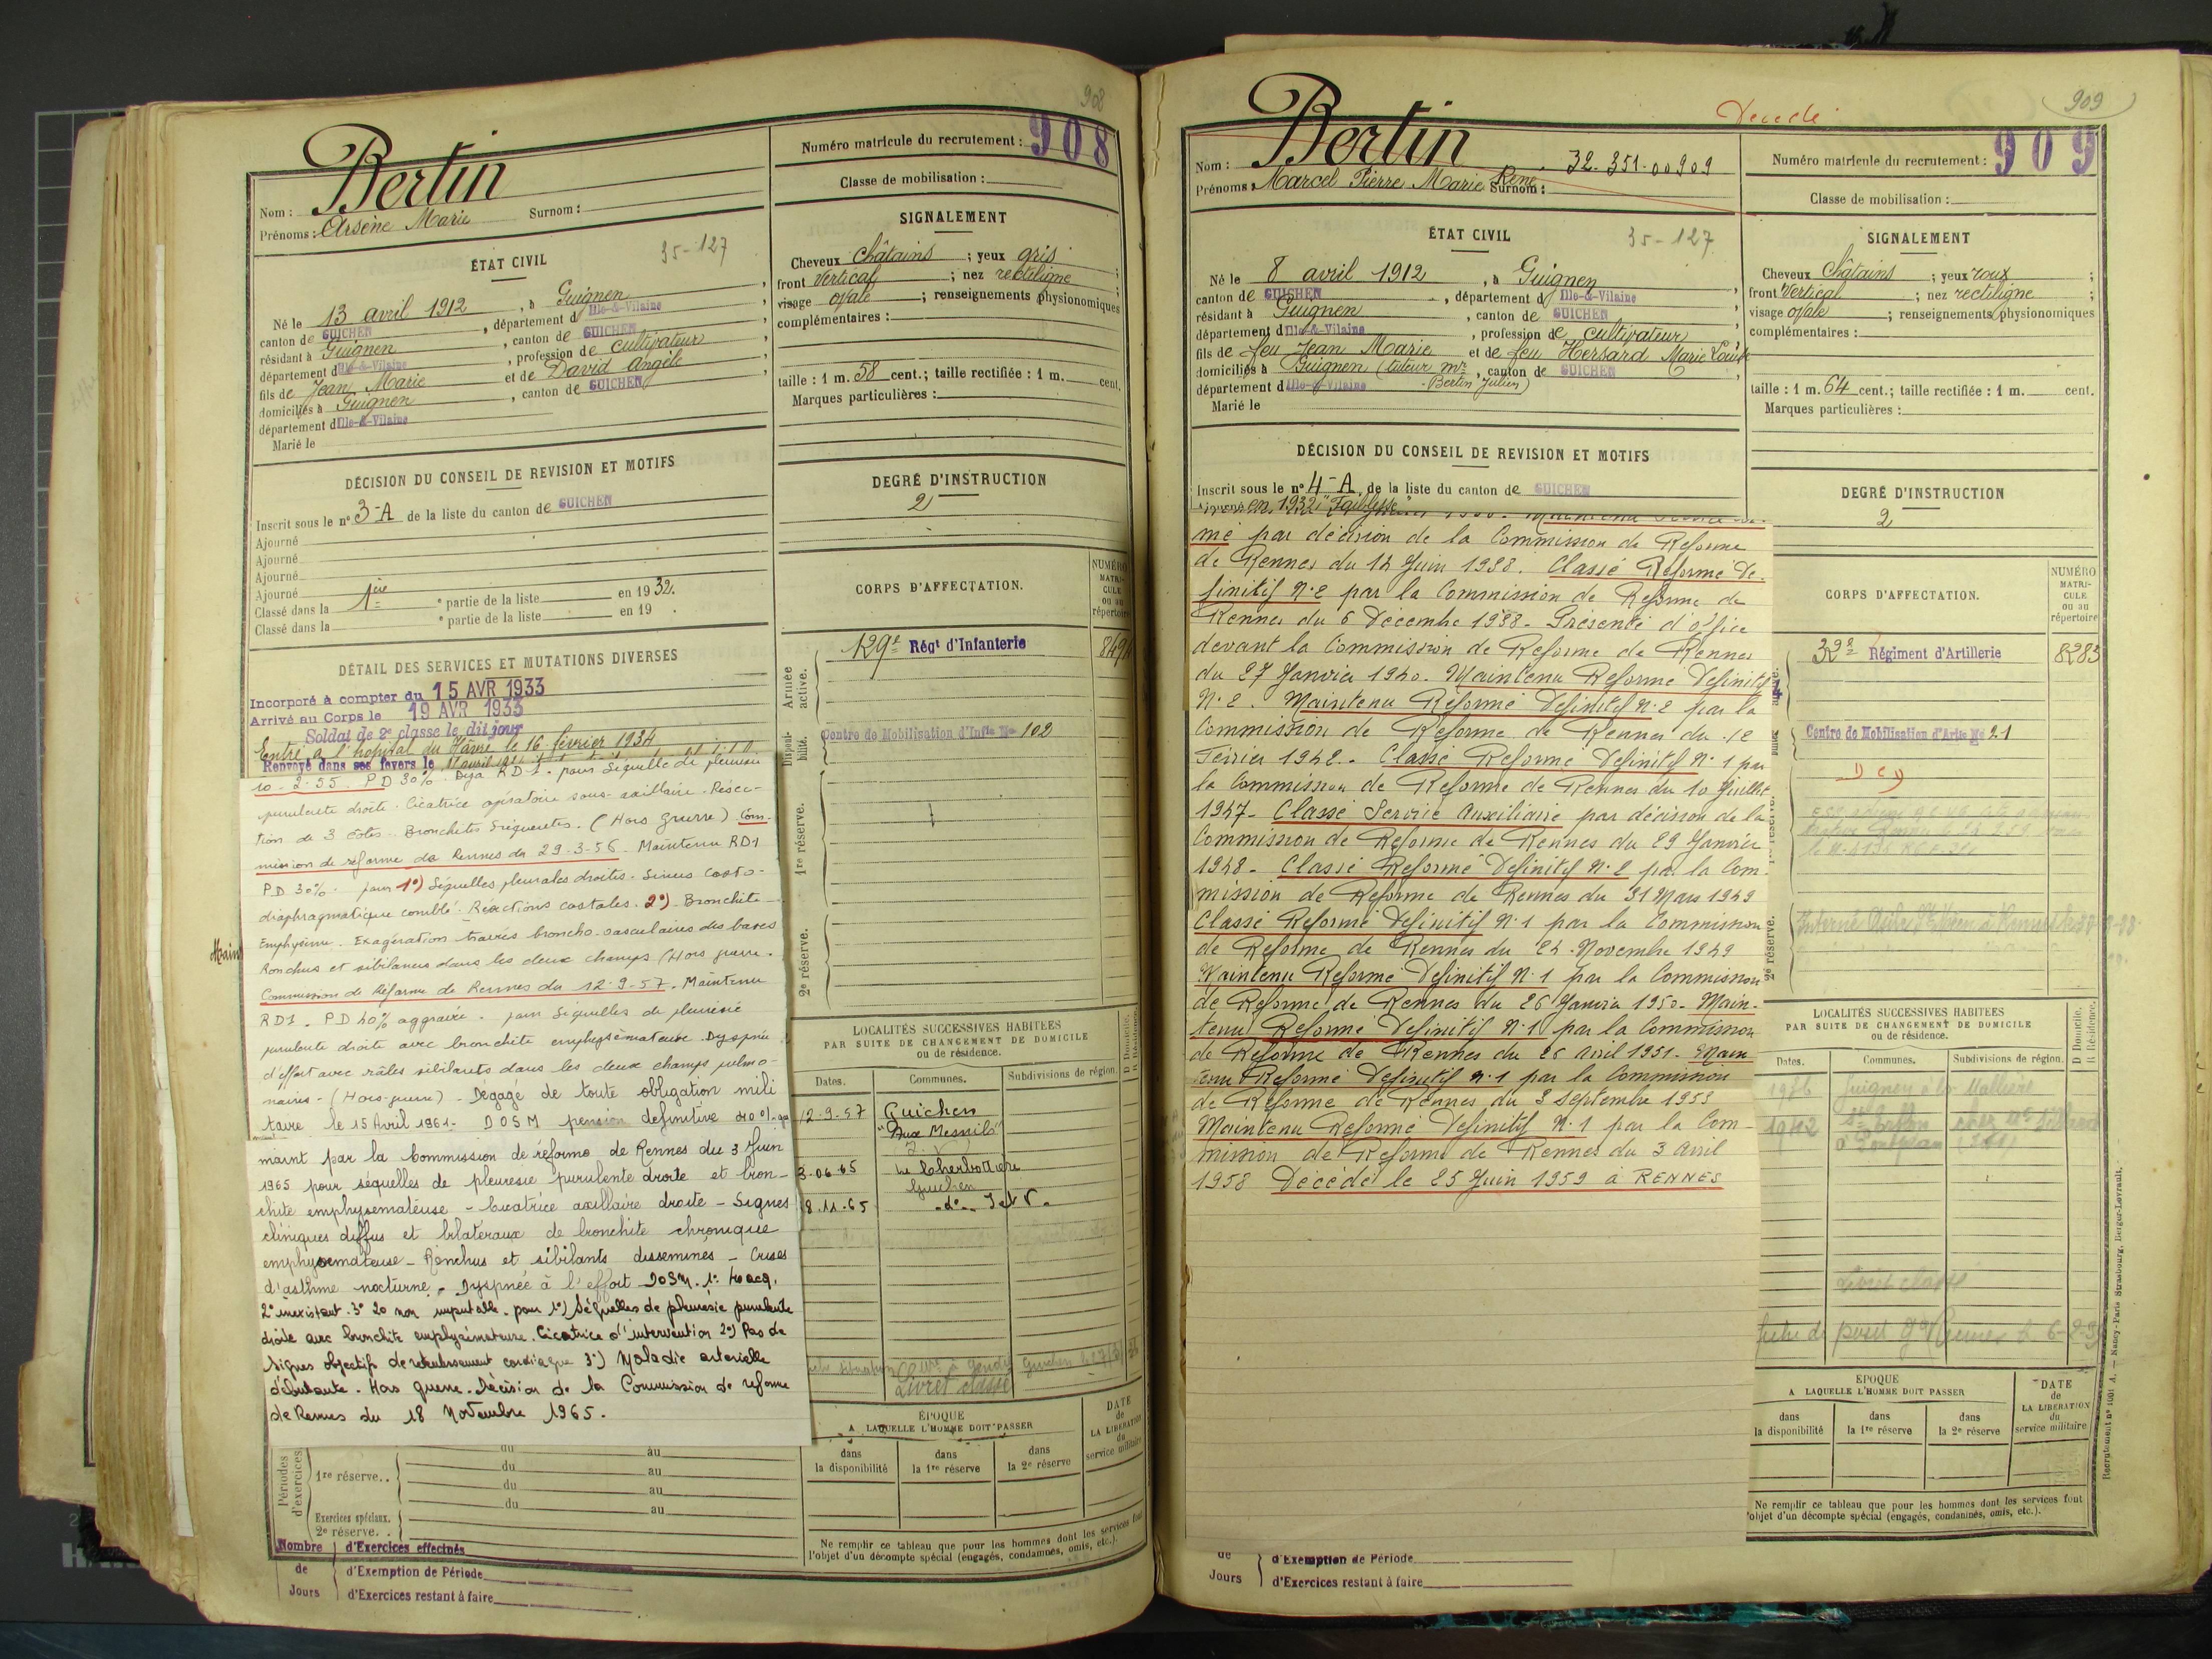 908
Bertin
Nom :
Prénoms : Arsène Marie Surnom :
Numéro matricule du recrutement : 908
Classe de mobilisation :
ÉTAT CIVIL
35-127
Né le 13 avril 1912, à Guignen,
canton de GUICHEN, département d'Ille-&-Vilaine,
résidant à Guignen, canton de GUICHEN,
département d'Ille-&-Vilaine, profession de cultivateur,
fils de Jean Marie et de David Angèle,
domiciliés à Guignen, canton de GUICHEN,
département d'Ille-&-Vilaine
Marié le
SIGNALEMENT
Cheveux châtains ; yeux gris ;
front vertical ; nez rectiligne ;
visage ovale ; renseignements physionomiques
complémentaires :
taille : 1 m. 58 cent.; taille rectifiée : 1 m. cent.
Marques particulières :
DÉCISION DU CONSEIL DE REVISION ET MOTIFS
Inscrit sous le n° 3-A de la liste du canton de GUICHEN
Ajourné
Ajourné
Ajourné
Ajourné
Classé dans la 1ère partie de la liste en 1932.
Classé dans la e partie de la liste en 19 .
DEGRÉ D'INSTRUCTION
2
DÉTAIL DES SERVICES ET MUTATIONS DIVERSES
Incorporé à compter du 15 AVR 1933
Arrivé au Corps le 19 AVR 1933
Soldat de 2e classe le dit jour
Entré à l'hôpital du Hâvre le 16 février 1934
Renvoyé dans ses foyers le
10-2-55. PD 30%. Déjà RD1. pour Séquelle de pleurésie
purulente droite. Cicatrice opératoire sous-axillaire. Résec-
tion de 3 côtes. Bronchites fréquentes. (Hors guerre) Com-
mission de réforme de Rennes du 29-3-56. Maintenu RD1
PD 30%. pour 1°) Séquelles pleurales droites. Sinus costo-
diaphragmatique comblé. Réactions costales. 2°) Bronchite
Emphysème. Exagération travées broncho-vasculaires des bases
Ronchus et sibilances dans les deux champs (Hors guerre.
Commission de Réforme de Rennes du 12-9-57. Maintenu
RD1. PD 40% aggravée. pour Séquelles de pleurésie
purulente droite avec bronchite emphysémateuse. Dyspnée
d'effort avec râles sibilants dans les deux champs pulmo-
naires - (Hors-guerre) - Dégagé de toute obligation mili
taire le 15 Avril 1961. DOSM pension définitive
maint par la Commission de réforme de Rennes du 3 Juin
1965 pour séquelles de pleuresie purulente droite et bron-
chite emphysemateuse - Cicatrice axillaire droite - Signes
cliniques diffus et bilateraux de bronchite chronique
emphysemateuse - Ronchus et sibilants disseminés - Crises
d'asthme nocturne. - Dyspnée à l'effort DOSM. 1°
2° inexistant. 3° 20 non imputable. pour 1°) Séquelles de pleurésie purulente
droite avec bronchite emphysémateuse. Cicatrice d'intervention 2°) Pas de
signes objectifs de retentissement cardiaque 3°) Maladie arterielle
débutante. Hors guerre. Décision de la Commission de reforme
de Rennes du 18 Novembre 1965.
Maint
CORPS D'AFFECTATION.
NUMÉRO MATRICULE ou au répertoire
Armée active.
129e Régt d'Infanterie
Disponibilité.
Centre de Mobilisation d'Infie No 102
1re réserve.
2e réserve.
LOCALITÉS SUCCESSIVES HABITÉES
PAR SUITE DE CHANGEMENT DE DOMICILE
ou de résidence.
D Domicile.
R Résidence.
Dates. Communes. Subdivisions de région.
12-9-57 Guichen
"Aux Mesnils"
3-06-65
Guichen
18-11-65
Livret classé
ÉPOQUE
A LAQUELLE L'HOMME DOIT PASSER
dans la disponibilité
dans la 1re réserve
dans la 2e réserve
DATE de LA LIBÉRATION du service militaire
Périodes d'exercices
1re réserve..
du au
du au
du au
du au
Exercices spéciaux.
2e réserve. .
Nombre de Jours
d'Exercices effectués
d'Exemption de Période
d'Exercices restant à faire
Ne remplir ce tableau que pour les hommes dont les services font
l'objet d'un décompte spécial (engagés, condamnés, omis, etc.).
909
Décédé
Bertin
32-351-00909
Nom :
Prénoms : Marcel Pierre Marie René Surnom :
Numéro matricule du recrutement : 909
Classe de mobilisation :
ÉTAT CIVIL
35-127
Né le 8 avril 1912, à Guignen
canton de GUICHEN, département d'Ille-&-Vilaine
résidant à Guignen, canton de GUICHEN
département d'Ille-&-Vilaine, profession de cultivateur
fils de feu Jean Marie et de feu Hersard Marie Louise
domiciliés à Guignen (tuteur Mr, canton de GUICHEN
département d'Ille-&-Vilaine Bertin Julien)
Marié le
SIGNALEMENT
Cheveux châtains ; yeux roux ;
front vertical ; nez rectiligne ;
visage ovale ; renseignements physionomiques
complémentaires :
taille : 1 m. 64 cent.; taille rectifiée : 1 m. cent.
Marques particulières :
DÉCISION DU CONSEIL DE REVISION ET MOTIFS
Inscrit sous le n° 4-A de la liste du canton de GUICHEN
Ajourné en 1932 "Faiblesse"
DEGRÉ D'INSTRUCTION
2
mé par décision de la Commission de Reforme
de Rennes du 12 Juin 1938. Classé Réformé Dé-
finitif N°2 par la Commission de Reforme de
Rennes du 6 Décembe 1938- Présenté d'office
devant la Commission de Reforme de Rennes
du 27 Janvier 1940. Maintenu Reformé Definitif
N°2. Maintenu Reformé Definitif N°2 par la
Commission de Reforme de Rennes du 12
Février 1942.- Classé Reformé Definitif N°1 par
la Commission de Reforme de Rennes du 10 Juillet
1947- Classé Service Auxiliaire par décision de la
Commission de Reforme de Rennes du 29 Janvier
1948- Classé Reformé Definitif N°2 par la Com-
mission de Reforme de Rennes du 31 Mars 1949
Classé Reformé Definitif N°1 par la Commission
de Reforme de Rennes du 24 Novembre 1949
Maintenu Reformé Definitif N°1 par la Commission
de Reforme de Rennes du 26 Janvier 1950- Main-
tenu Reformé Definitif N°1 par la Commission
de Reforme de Rennes du 26 Avril 1951- Main
tenu Reformé Definitif N°1 par la Commission
de Réforme de Rennes du 3 Septembre 1953
Maintenu Reformé Definitif N°1 par la Com-
mission de Reforme de Rennes du 3 Avril
1958 Décédé le 25 Juin 1959 à RENNES
CORPS D'AFFECTATION.
NUMÉRO MATRICULE ou au répertoire
Régiment d'Artillerie 8283
Centre de Mobilisation d'Artie No 21
DCD
2e réserve.
LOCALITÉS SUCCESSIVES HABITÉES
PAR SUITE DE CHANGEMENT DE DOMICILE
ou de résidence.
D Domicile.
R Résidence.
Dates. Communes. Subdivisions de région.
Livret classé
ÉPOQUE
A LAQUELLE L'HOMME DOIT PASSER
dans la disponibilité
dans la 1re réserve
dans la 2e réserve
DATE de LA LIBÉRATION du service militaire
Ne remplir ce tableau que pour les hommes dont les services font
l'objet d'un décompte spécial (engagés, condamnés, omis, etc.).
de Jours
d'Exemption de Période
d'Exercices restant à faire